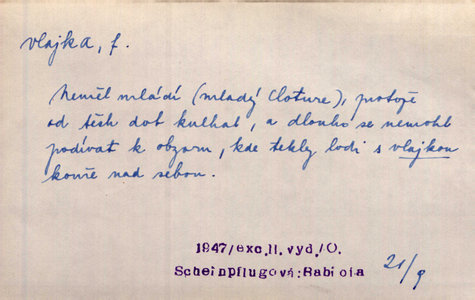 vlajka, f.
Neměl mládí (mladý Cloture), protože
od těch dob kulhal, a dlouho se nemohl
podívat k obzoru, kde tekly lodi s vlajkou
kouře nad sebou.
1947/exc.II.vyd./O.
Scheinpflugová:Babiola
21/9